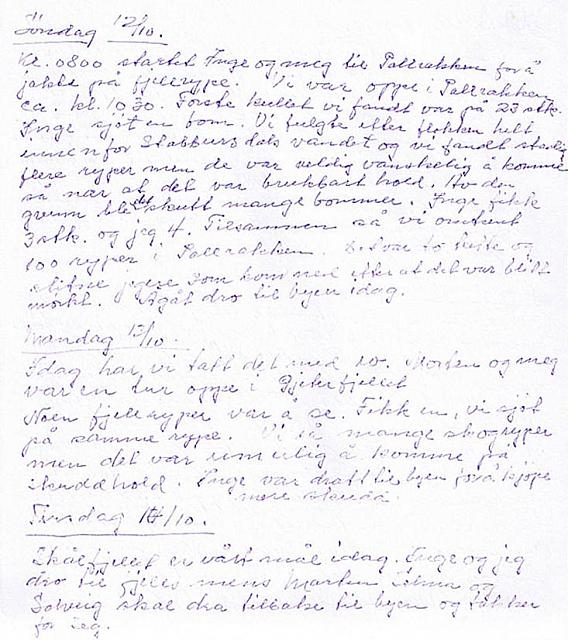 Søndag 12/10.
Kl. 0800 startet Inge og meg til Pallrakken for å
jakte på fjellrype. Vi var oppe i Pallrakken
ca. kl. 10 30. Første kullet vi fandt var på 23 stk.
Inge sjöt en bom. Vi fulgte etter flokken helt
innenfor Stabbursdals vandet og vi fandt stadig
flere ryper men de var veldig vanskelig å komme
så nær at det var brukbart hold. Av den
grunn ble det skutt mange bommer. Inge fikk
3 stk. og jeg 4. Tilsammen så vi omtrent
100 ryper i Pallrakken. Det var to trøtte og
slitne jegere som kom ned etter at det var blitt
mørkt. Agåt dro til byen idag.
Mandag 13/10.
Idag har vi tatt det med ro. Morten og meg
var en tur oppe i Pjeterfjellet
Noen fjellryper var å se. Fikk en, vi sjöt
på samme rype. Vi så mange skogryper
men det var umulig å komme på
skuddhold. Inge var dratt til byen for å kjøpe
mere skudd.
Tirsdag 14/10.
Skålfjellet er vårt mål idag. Inge og jeg
dro til fjells mens Morten
Solveig skal dra tilbake til byen og
for seg.